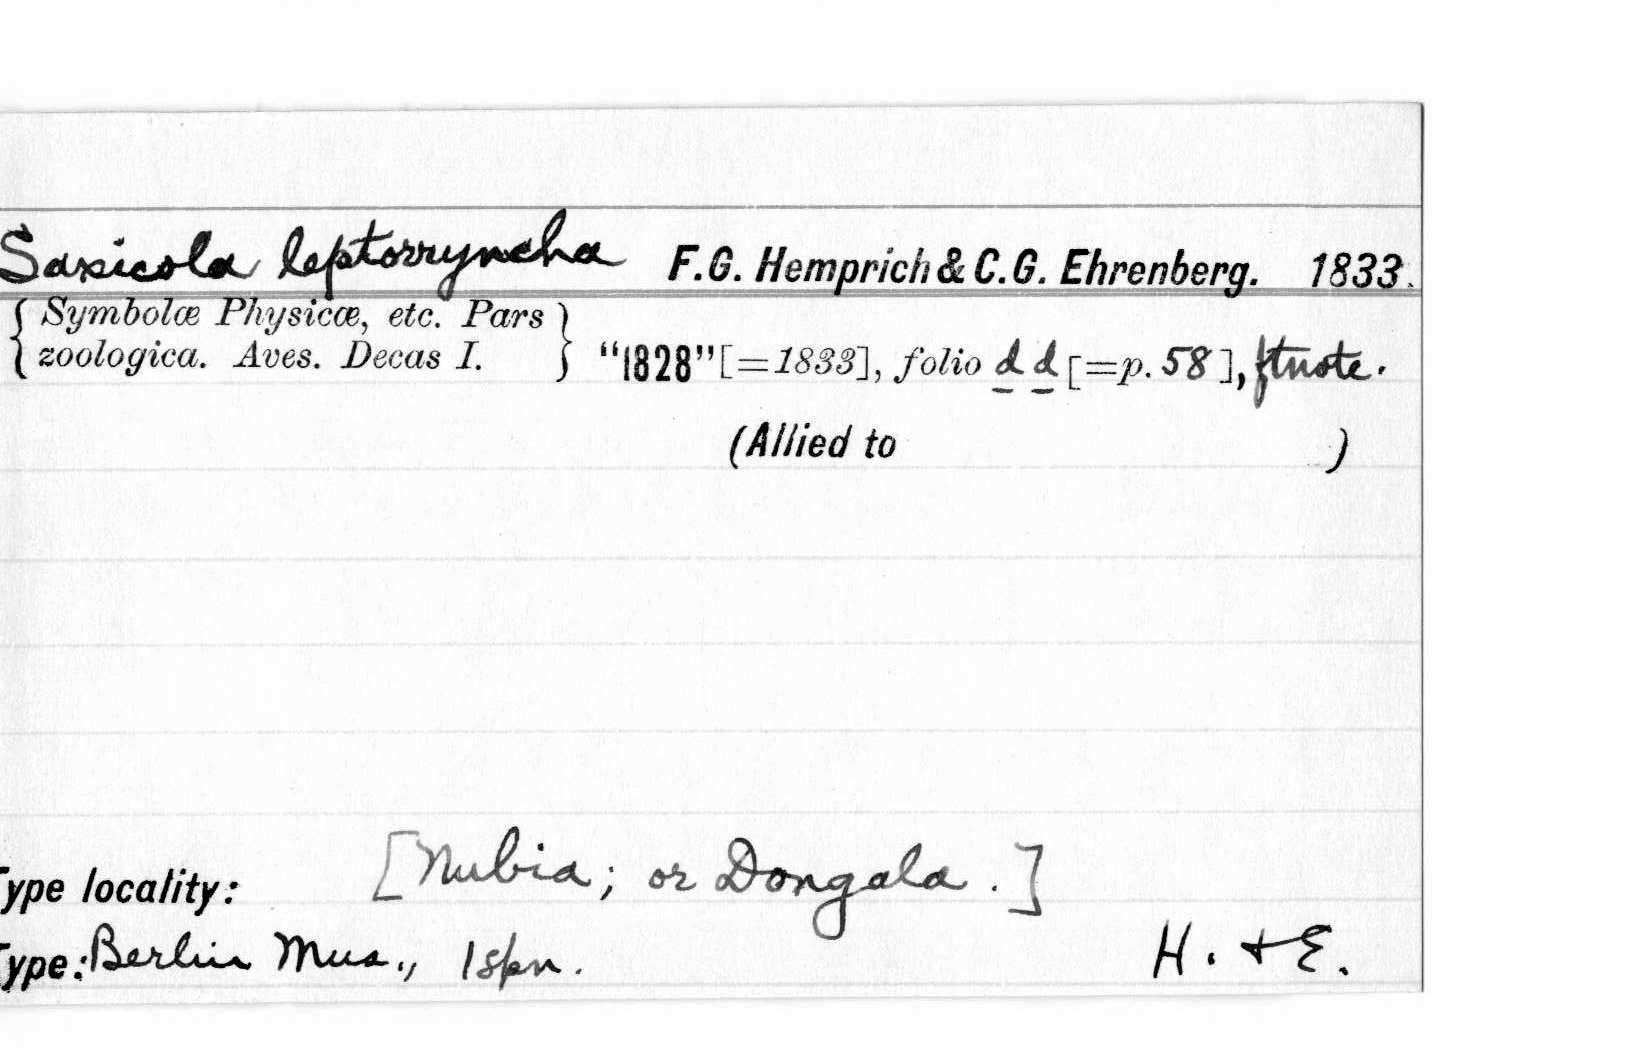 Saxicola leptorryncha F.G. Hemprich & C.G. Ehrenberg. 1833.
{ Symbolæ Physicæ, etc. Pars
zoologica. Aves. Decas I. } "1828" [=1833], folio d d [=p. 58], ftnote.
(Allied to )
Type locality: [Nubia; or Dongala.]
Type: Berlin Mus., 1 spn. H. + E.